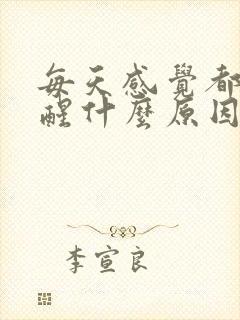 每天感覺都
醒什麼原因
李宣良